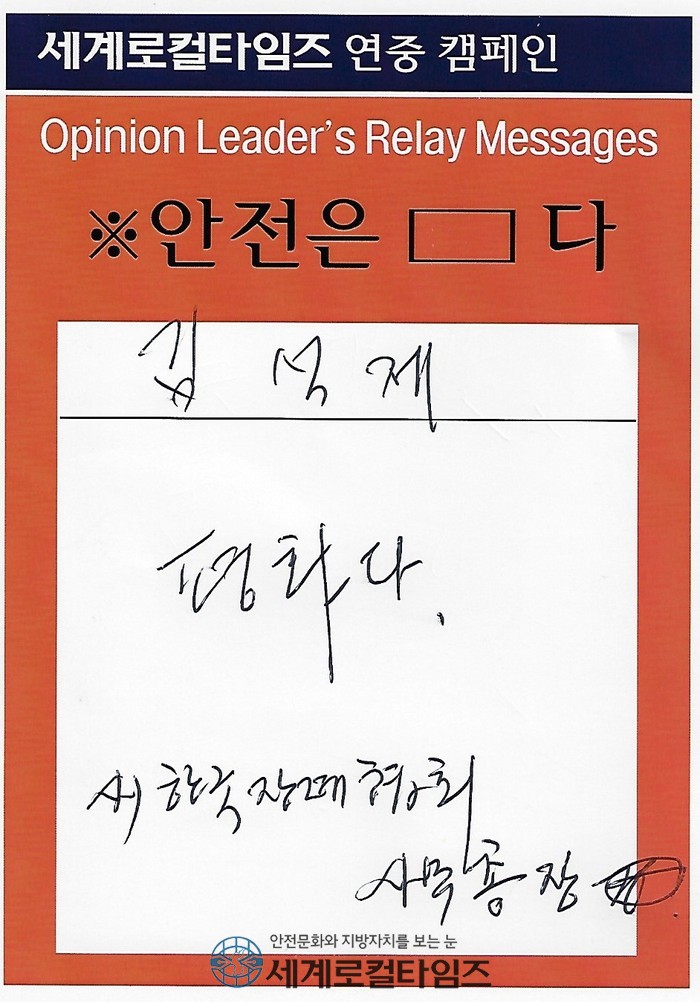 세계로컬타임즈 연중 캠페인
Opinion Leader's Relay Messages
※안전은 다
김 석 재
평화다.
사) 한국장례협회
사무총장
안전문화와 지방자치를 보는 눈
세계로컬타임즈